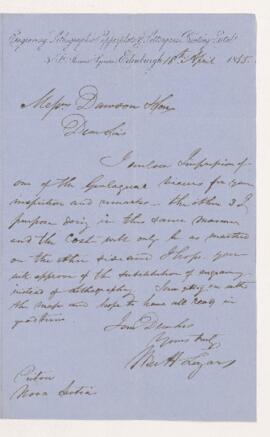 Engraving, Lithographic, Copperplate & Letterpress Printing Establ
3 St James Square Edinburgh 18th April 1855.
Messrs Dawson & Son
Dear Sir
I enclose Impression of
one of the Geological Maps for your
inspection and remarks – the other 3 I
purpose doing in the same manner
and the Cost will only be as marked
on the other side and I hope you
will approve of the substitution of engraving
instead of lithography. I am going on with
the map and hope to have all ready in
good time
I am Dear Sirs
Yours truly
Wm H Lizars
Pictou
Nova Scotia